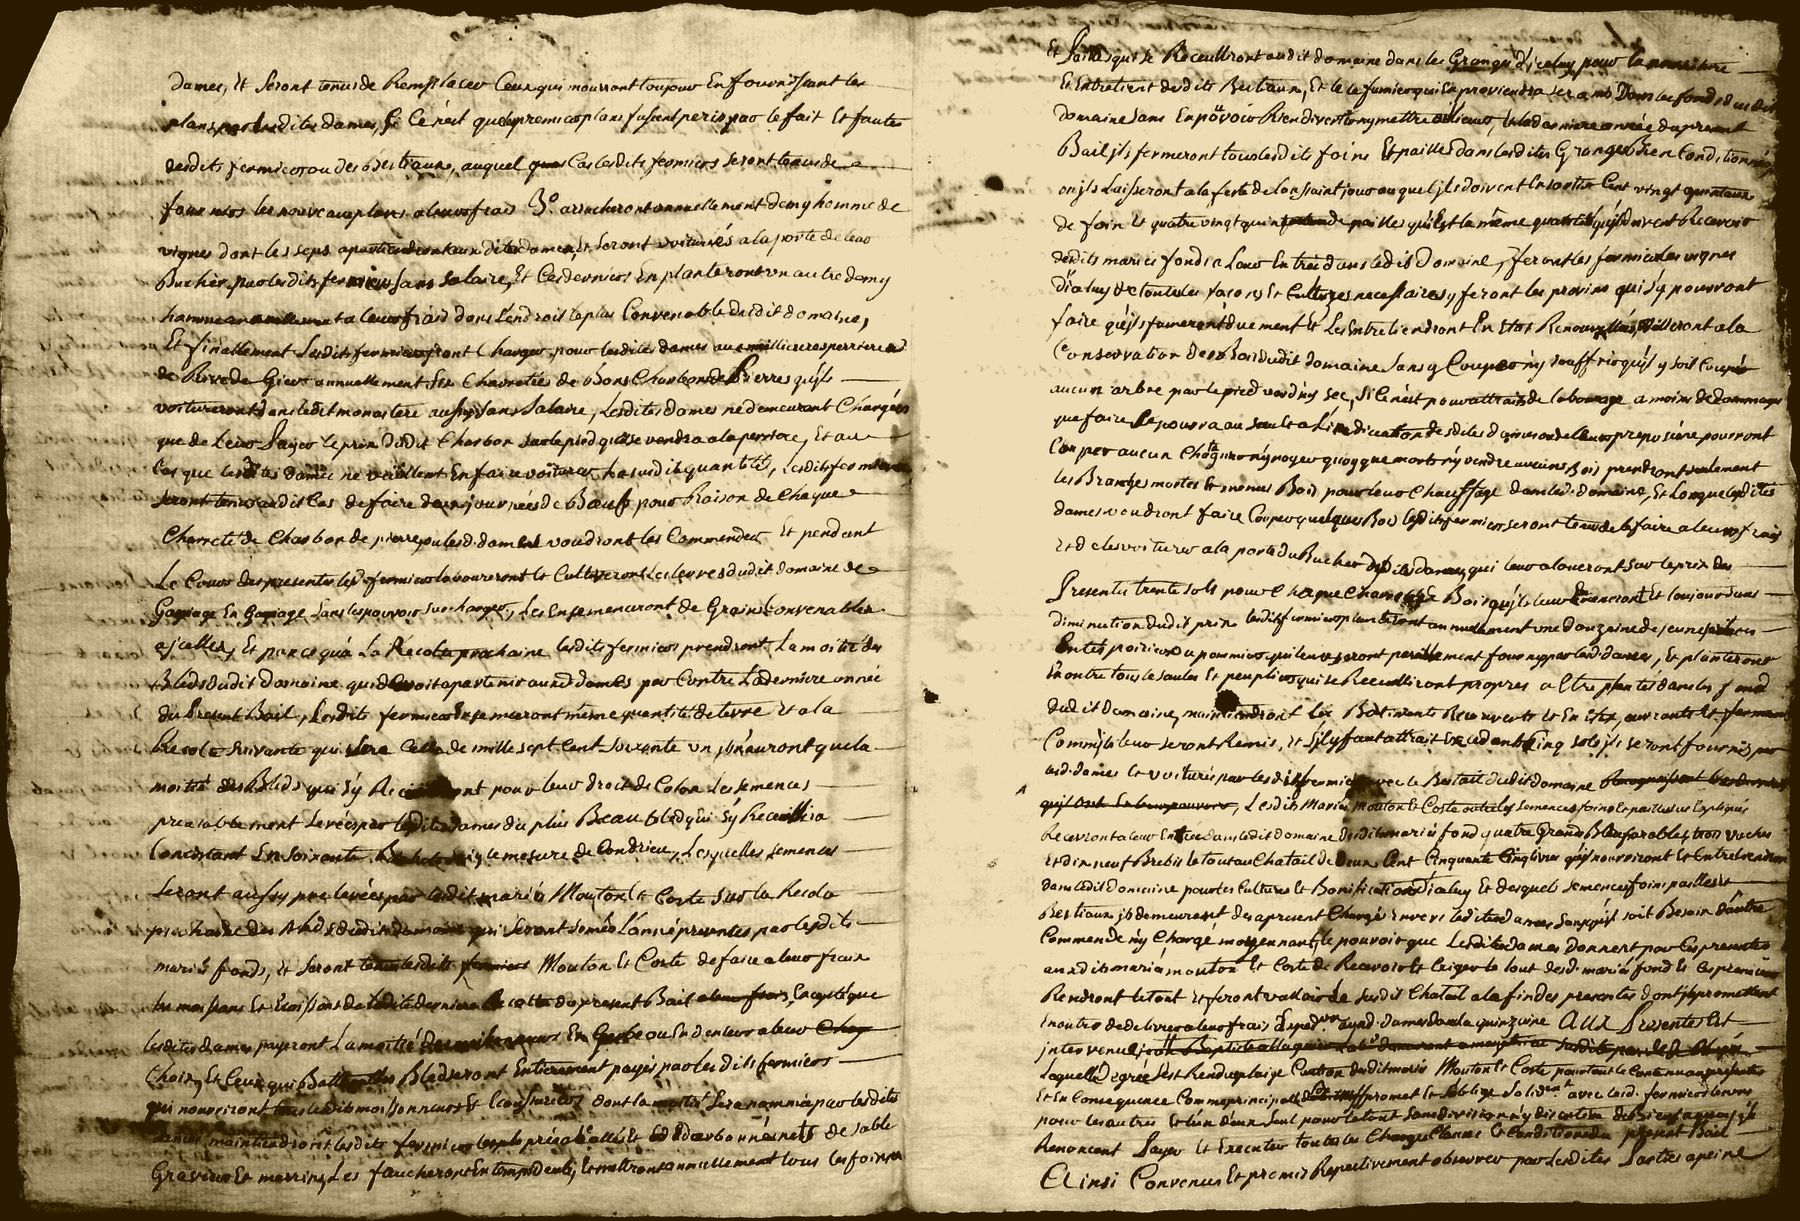 dames, Et Seront tenus de Remplacer Ceux qui mourront toujour En fournissant les
plans par lesdites dames, Si Ce n'est que les premiers plans fussent peris par le fait Et fautes
desdits fermiers ou des Bestiaux, auquel Cas lesdits fermiers Seront tenus de
fournir les nouveaux plans a leurs frais 3.o arracheront annuellement demy homme de
vignes dont les seps apartiendront aux dites dames, Et Seront voiturés a la porte de leur
Bucher par lesdits fermiers Sans Salaire, Et Ces derniers En planteront un autre demy
homme annuellement a leurs frais dans l'endroit le plus Convenable dudit domaine,
Et finallement Lesdits fermiers seront Charger pour lesdites dames aux perriere
de Rive de Gier annuellement Six Charretées de Bons Charbon de Pierres qu'ils
voitureront dans ledit monastere aussy Sans Salaire, Lesdites Dames ne demeurant Chargées
que de Leur Payer le prix dudit Charbon Sur le pied qu'il se vendra a la perriere, Et au
Cas que lesdites dames ne veuillent En faire voiturer la susdite quantité, Lesdits fermiers
Seront tenus audit Cas de faire deux journées de Bœufs pour Raison de Chaque
Charreté de Charbon de pierre que lesd. dames voudront les Commender Et pendant
Le Cours des presentes lesd. fermiers laboureront Et Cultiveront Les terres dudit domaine de
Gagnage En Gagnage Sans les pouvoir Surcharger, Les Ensemenceront de Grains Convenables
a jcelles, Et parce qu'a La Recolte prochaine lesdits fermiers prendront La moitié des
Bleds dudit Domaine qui devoit apartenir auxd. dames par Contre La derniere année
du Present Bail, Lesdits fermiers Ensemenceront même quantité de terre Et a la
Recolte Suivante qui Sera Celle de mille Sept Cent Soixante un jls n'auront que la
moitié des Bleds qui s'y Recueilleront pour leur droit de Colon Les Semences
prealablement Levées par lesdites dames du plus Beau Bled qui s'y Recueillira
Consistant En Soixante mesure de Condrieu, Lesquelles Semences
Seront aussy prelevées par lesdits mariés Mouton Et Coste Sur la Recolte
prochaine des Bleds dudit domaine qui Seront Semés L'année presentes par lesdits
mariés fonds, Et Seront Mouton Et Coste de faire a leur fraix
les moissons Et de ladite derniere Recolte du present Bail En ce que
lesdites dames payeront La moitié En Gerbe ou En deniers a leur
Choix, Et Ceux qui Battront les Bled Seront Entierement payés par lesdits fermiers
qui nourriront tous lesdits moissonneurs Et dont la moitié Sera nommée par lesdites
dames, maintiendront lesdits fermiers les prés de Sable
Graviers Et marrins, Les faucheront En temps dents, Et mettront annuellement tous les foins
Et Pailles qui se Recuellront audit domaine dans les Granges d'jceluy pour la nourriture
Et Entretient desdits Bestiaux, Et le fumier qui En proviendra Sera mis Dans les fonds dudit
domaine Sans En pouvoir Rien divertir ny mettre ailleurs, Et la derniere année du present
Bail jls fermeront tous lesdits foins Et pailles dans lesdites Granges Bien Conditionnés
ou jls Laisseront a la feste de la Toussaint jour auquel jls doivent En sortir Cent vingt quintaux
de foin Et quatre vingt quintaux de pailles qui Est la même quantité qu'ils doivent Recevoir
desdits mariés fond a Leur Entrée dans ledit Domaine, feront les fermiers les vignes
d'jceluy de toutes les façons Et Cultures necessaires, y feront les provins qui s'y pourront
faire qu'ils fumeront duement Et Les Entretiendront En Etat Renouvellés, Veilleront a la
Conservation des Bois dudit domaine Sans y Couper n'y Souffrir qu'il y Soit Coupé
aucun arbre par le pied verd n'y sec, Si Ce n'est pour attraits de labourage a moins de dommage
que faire se pourra au Seul a L'indication desdites dames ou de leurs preposés ne pourront
Couper aucun Chesne n'y noyer quoyque morts n'y vendre aucuns Bois prendront Seulement
les Branches mortes Et menus Bois pour leur Chauffage dans led. domaine, Et Lorsque lesdites
dames voudront faire Couper quelques Bois lesdits fermiers seront tenus de le faire a leurs frais
Et de les voiturer a la porte du Bucher desdites dames, qui leur aloueront Sur le prix des
Presentes trente Sols pour Chaque Charretée Bois qu'ils leur Et toujours sans
diminution dudit prix lesdits fermiers planteront annuellement une douzaine de jeunes
Entes poiriers ou pommiers qui leur seront pareillement fournis par lesd. dames, Et planteront
En outre tous les Saules Et peupliers qui se Recuelliront propres a Etre plantés dans les fonds
dudit Domaine, maintiendront Les Batiments Recouverts Et En Etat, ouvrants Et fermans
Comme jls leur Seront Remis, Et S'il y faut attrait Excedent Cinq Sols jls Seront fournis par
lesd. dames Et voiturés par lesdits fermiers avec le Bestail dudit domaine
Lesdits Mariés Mouton Et Coste outre les Semences foins Et pailles sus Expliqués
Recevront a leur Entrée dans ledit domaine desdits mariés fond quatre Grand Bœufs arables, trois vaches
Et dix neuf Brebis le tout au Chatail de Deux Cent Cinquante Cinq livres qu'ils nourriront Et Entretiendront
dans ledit Domaine pour les Cultures Et Bonifications d'jceluy Et desquels Semences foins pailles Et
Bestiaux jls demeurent des apresent Chargés Envers lesdites dames Sans qu'il soit Besoin d'autre
Commende n'y Charge moyennant le pouvoir que Lesdites dames donnent par Ces presentes
auxdits mariés mouton Et Coste de Recevoir Et Exiger le tout desd. mariés fond Et Ces premiers
Rendront le tout Et feront valloir le Susdit Chatail a la fin des presentes dont jls promettent
En outre de delivrer a leur frais auxd. dames dans la quinzaine Aux Presentes Est
jntervenu
Laquelle degré s'est Rendu pleige Caution desdits mariés Mouton Et Coste pour tout le Contenu aux presentes
Et En Consequence Comme principal promet Et s'oblige Solid.mt avec lesd. fermiers l'un
pour les autres Et l'un d'eux Seul pour le tout Sans division n'y discution
Renoncent Payer Et Executer toutes les Charges Clauses Et Conditions du present Bail
Ainsi Convenus Et promis Respectivement observer par Lesdites Parties a peine